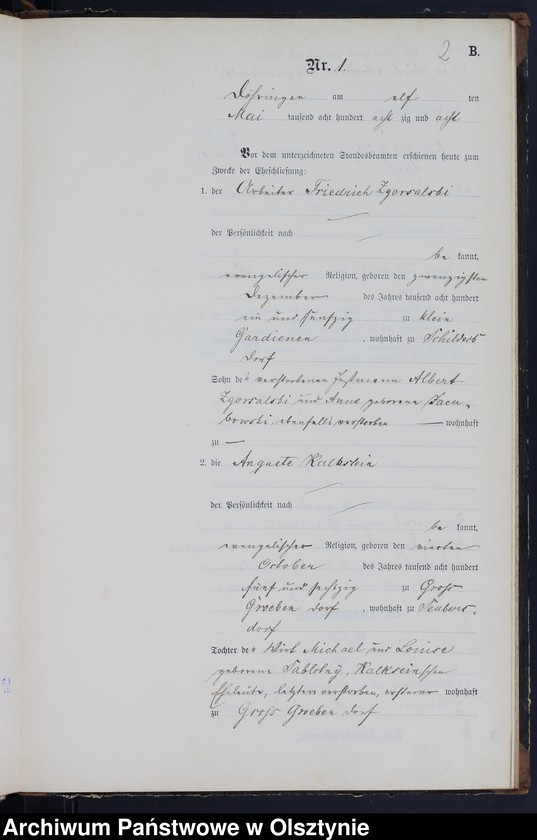 2 B.
Nr. 1.
Döhringen am elf ten
Mai tausend acht hundert acht zig und acht
Vor dem unterzeichneten Standesbeamten erschienen heute zum
Zwecke der Eheschließung:
1. der Arbeiter Friedrich Zgorsalski
der Persönlichkeit nach
be kannt,
evangelischer Religion, geboren den zwanzigsten
Dezember des Jahres tausend acht hundert
ein und fünfzig zu Klein
Gardienen, wohnhaft zu Schilders
dorf
Sohn des verstorbenen Albert
Zgorsalski und Anne geborene
ebenfalls verstorben — wohnhaft
zu —
2. die Auguste Kalkstein
der Persönlichkeit nach
be kannt,
evangelischer Religion, geboren den vierten
October des Jahres tausend acht hundert
fünf und sechszig zu Gross
Groeben dorf, wohnhaft zu
dorf
Tochter der Wirt Michael und Louise
geborene Kalkstein'schen
Eheleute, letztere verstorben, ersterer wohnhaft
zu Gross Groeben dorf
Archiwum Państwowe w Olsztynie